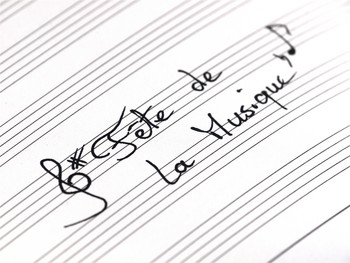 Fete de
La Musique